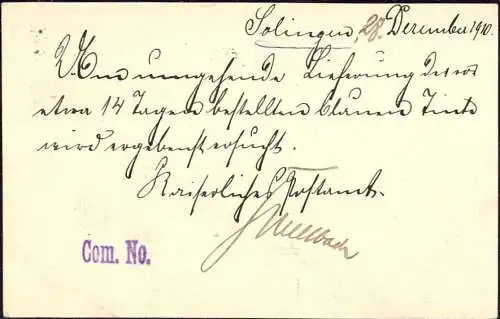 Solingen, 28. Dezember 1910.
Um umgehende Lieferung der vor
etwa 14 Tagen bestellten blauen Tinte
wird ergebenst ersucht.
Kaiserliches Postamt.
Com. No.